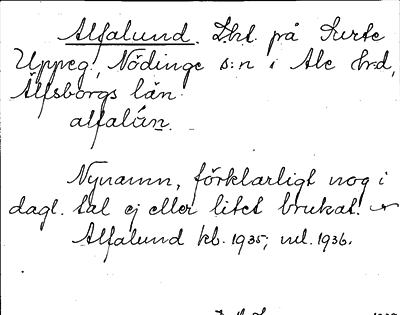 Alfalund. Lht. på Surte
Uppeg., Nödinge s:n i Ale hrd,
Älfsborgs län.
alfalún.
Nynamn, förklarligt nog i
dagl. tal ej eller litet brukat.
Alfalund kb. 1935; ml. 1936.